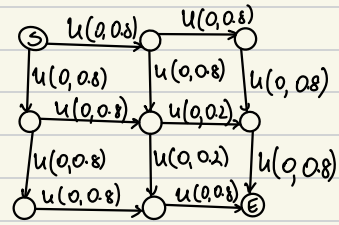 S U(0,0.8) U(0,0.8)
U(0,0.8) U(0,0.8) U(0,0.8)
U(0,0.8) U(0,0.2)
U(0,0.8) U(0,0.2) U(0,0.8)
U(0,0.8) U(0,0.8) E